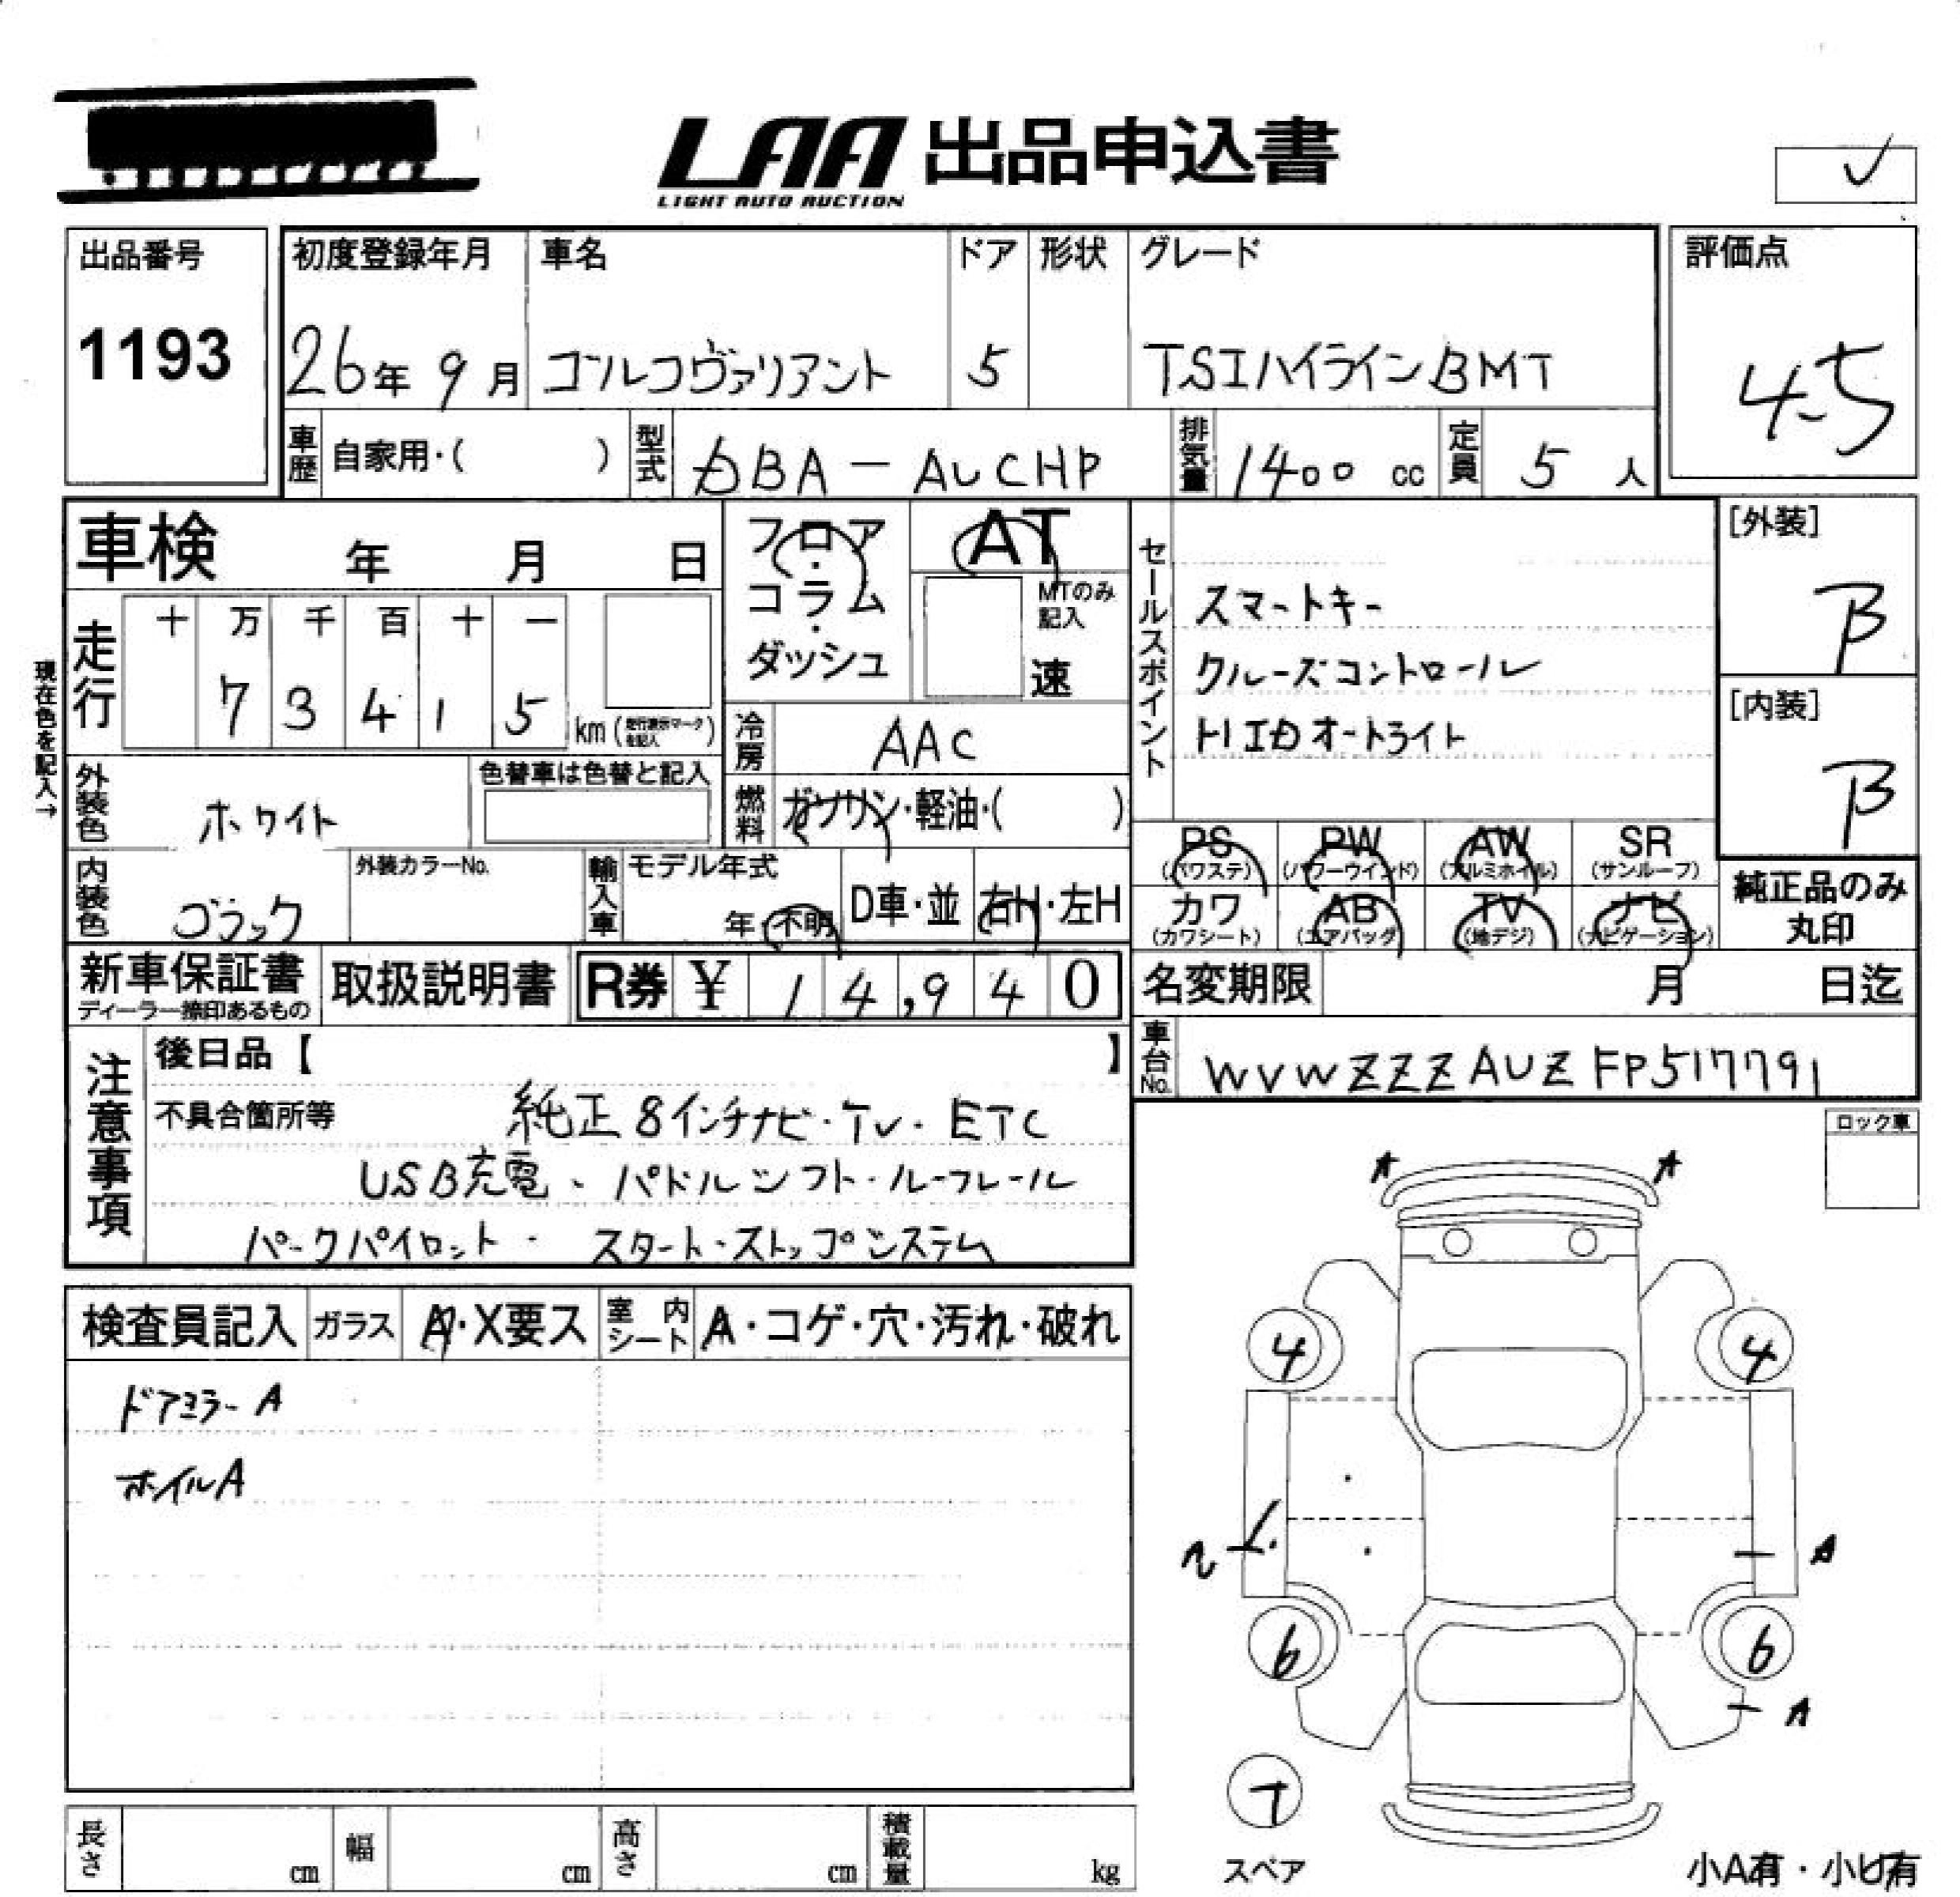 LAA 出品申込書
LIGHT AUTO AUCTION
出品番号
1193
初度登録年月
26年 9月
車名
ゴルフヴァリアント
ドア
5
形状
グレード
TSIハイラインBMT
評価点
4.5
車歴
自家用・( )
型式
DBA-AUCHP
排気量
1400 cc
定員
5 人
車検 年 月 日
フロア・コラム・ダッシュ
AT
MTのみ記入
速
セールスポイント
スマートキー
クルーズコントロール
HIDオートライト
[外装]
B
[内装]
B
現在色を記入→
走行
十 万 千 百 十 一
7 3 4 1 5
km (走行表示マークを記入)
冷房
AAC
燃料
ガソリン・軽油・( )
外装色
ホワイト
色替車は色替と記入
内装色
ブラック
外装カラーNo.
輸入車
モデル年式
年・不明
D車・並
右H・左H
PS (パワステ)
PW (パワーウインド)
AW (アルミホイル)
SR (サンルーフ)
カワ (カワシート)
AB (エアバック)
TV (地デジ)
ナビ (ナビゲーション)
純正品のみ
丸印
新車保証書
ディーラー捺印あるもの
取扱説明書
R券 ¥ 14,940
名変期限 月 日迄
車台No.
WVWZZZAUZFP517791
注意事項
後日品【 】
不具合箇所等
純正8インチナビ・TV・ETC
USB充電・パドルシフト・ルーフレール
パークパイロット・スタート・ストップシステム
ロック車
検査員記入
ガラス
A・X要ス
室内シート
A・コゲ・穴・汚れ・破れ
ドアミラーA
ホイルA
A A
4 4
A
6 6
A
T
スペア
小A有・小U有
長さ cm
幅 cm
高さ cm
積載量 kg